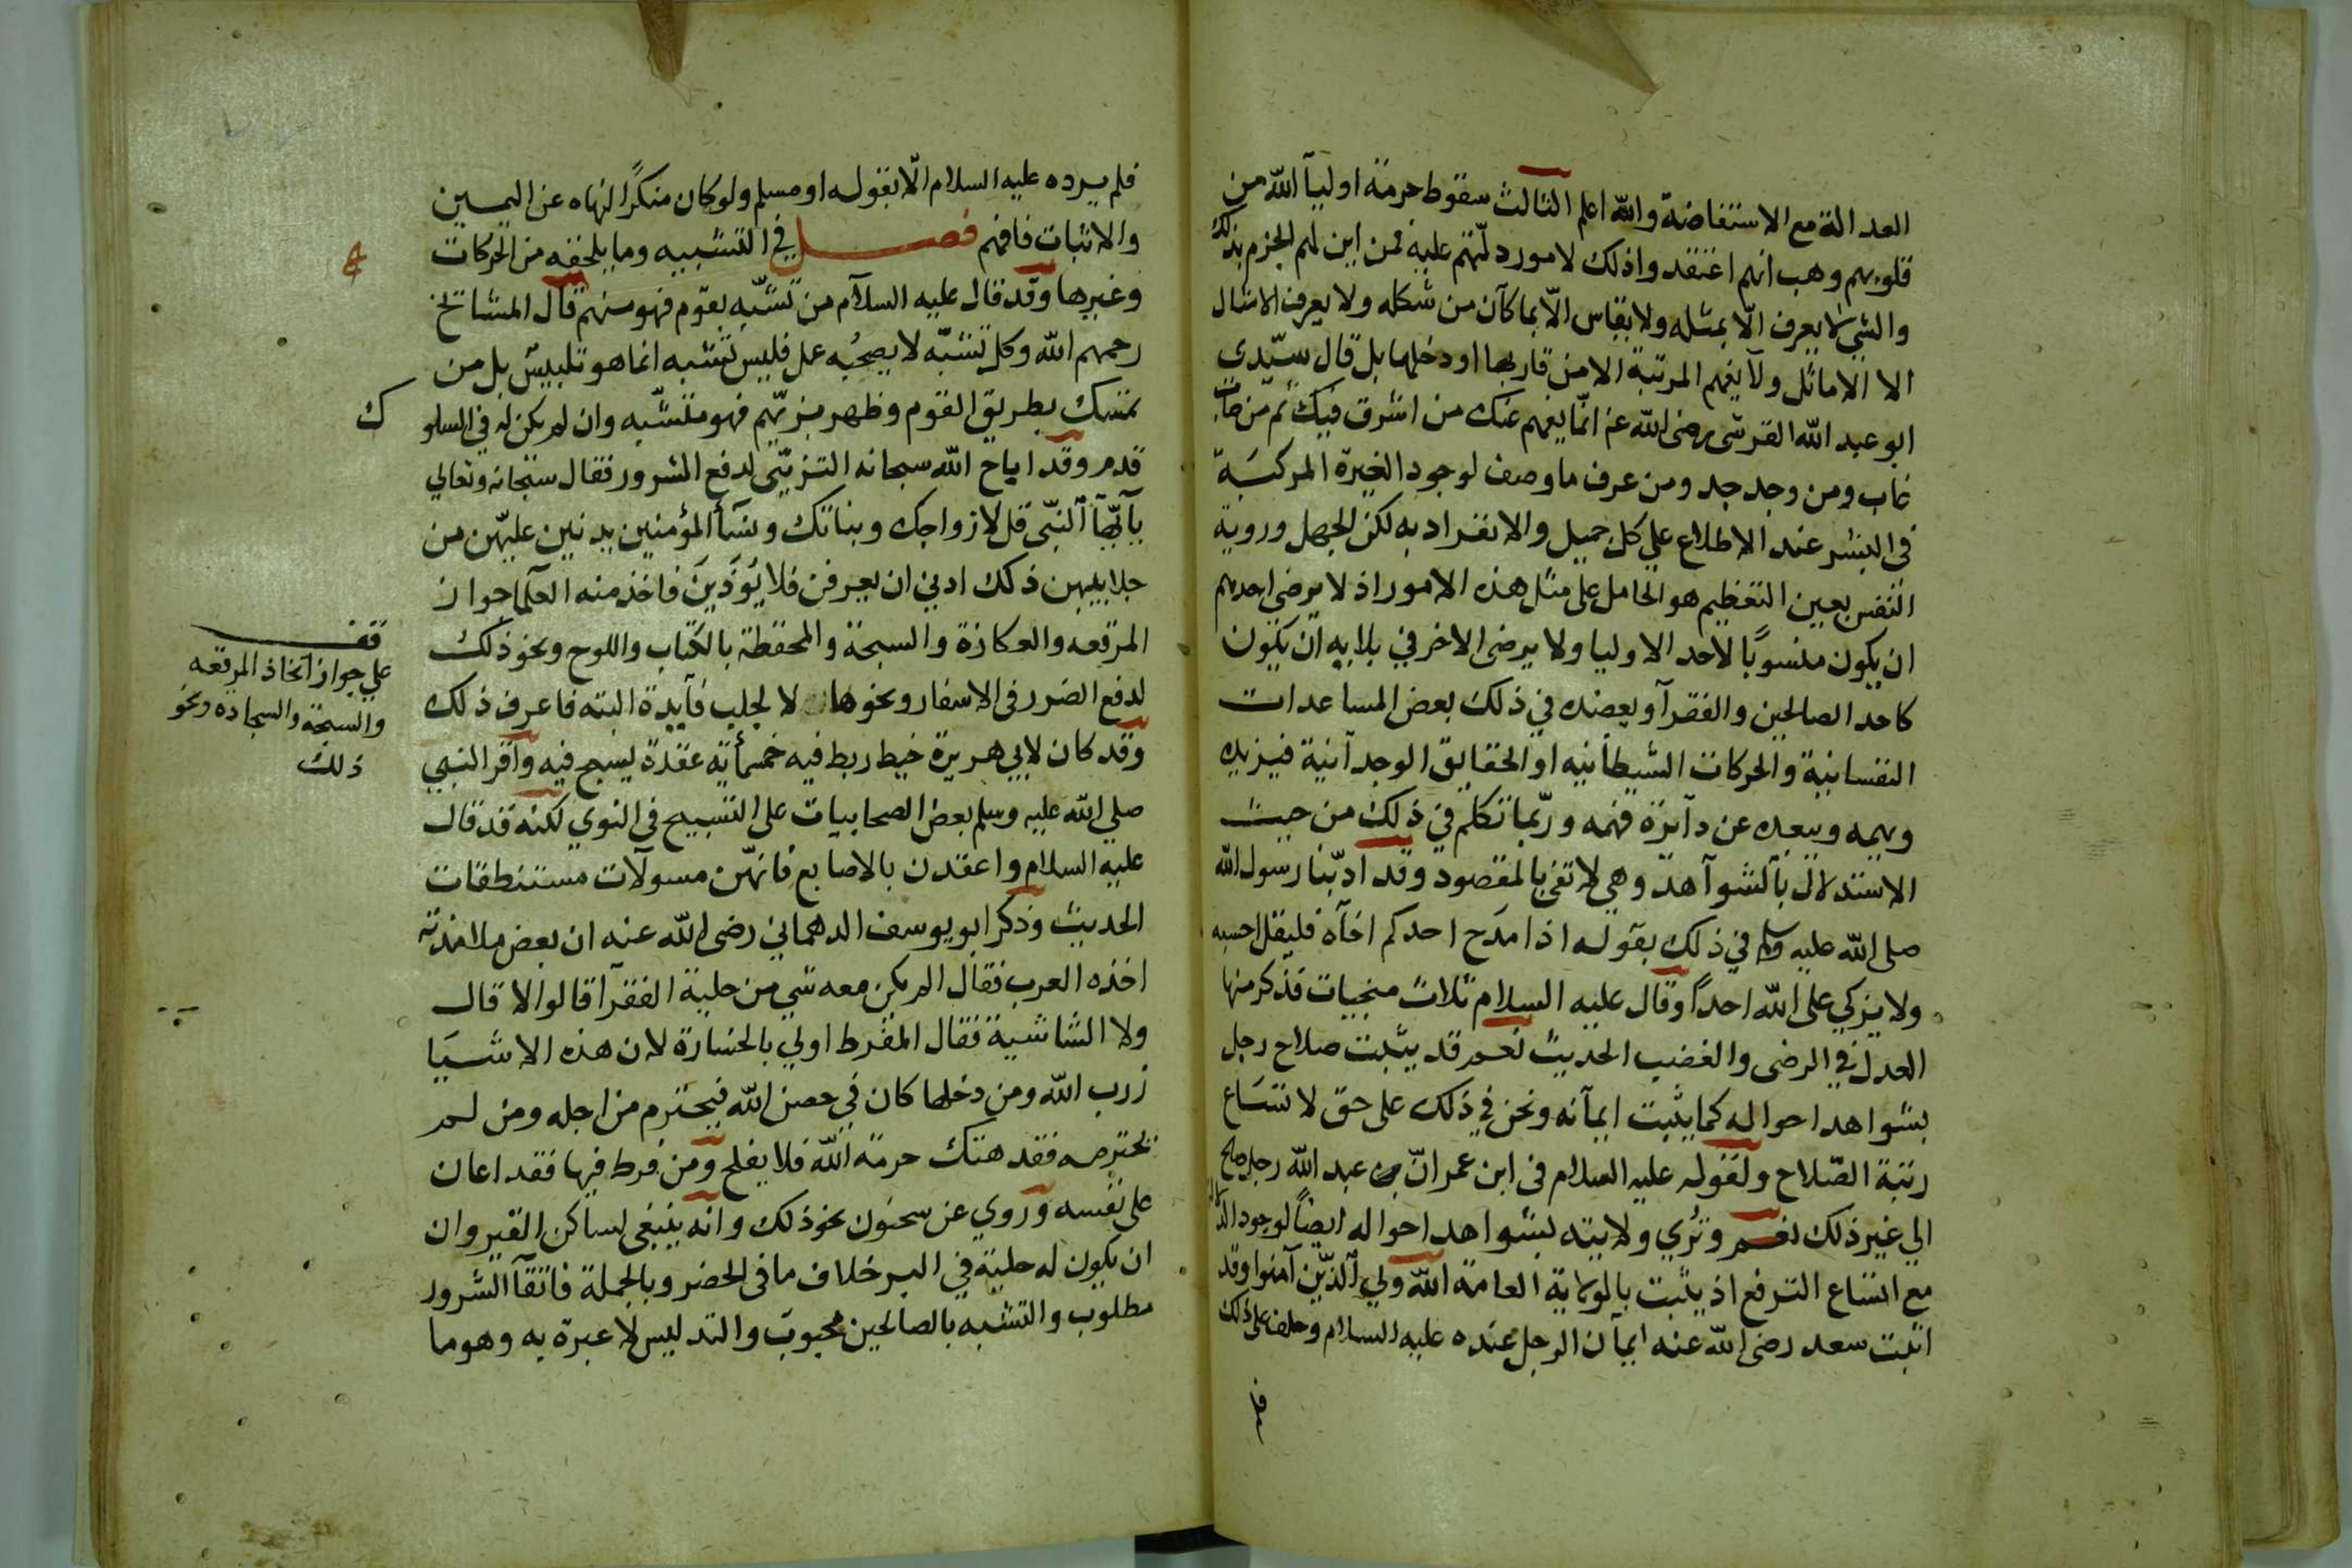 العدالة مع الاستفاضة والله اعلم الثالث سقوط حرمة اوليآ الله من
قلوبهم وهب انهم اعتقدوا ذلك لامور دلّتهم عليه فمن اين لهم الجزم بذلك
والشي لا يعرف الّا بمثله ولا يقاس الّا بما كآن من شكله ولا يعرف الامثال
الا الاماثل ولآ يفهم المرتبة الا من قاربها او دخلها بل قال سيّدي
ابو عبد الله القرشي رضي الله عنه انّما يفهم عنك من اشرق فيك ثم من
غاب ومن وجد جد ومن عرف ما وصف لوجود الغيرة المركبَة
في البشر عند الاطلاع علي كل جميل والانفراد به لكن الجهل وروية
النفس بعين التعظيم هو الحامل على مثل هذه الامور اذ لا يرضي احدهم
ان يكون منسوبًا لاحد الاوليا ولا يرضى الاخر في بلابه ان يكون
كاحد الصالحين والفقرآ ويعضده في ذلك بعض المساعدات
النفسانية والحركات الشيطانيه او الحقايق الوجدآنية فيزيده
وبهمه ويبعده عن دآئرة فهمه وربّما تكلم في ذلك من حيث
الاستدلال بآلشوآهد وهي لا تفي بالمقصود وقد ادبّنا رسول الله
صلى الله عليه وسلم في ذلك بقوله اذا مدَح احدكم اخآه فليقل احسبه
ولا يزكي على الله احداً وقال عليه السلام ثلاث منجيات فذكر منها
العدل في الرضى والغضب الحديث نعم قد يثبت صلاح رجل
بشواهد احواله كما يثبت ايمآنه ونحن في ذلك على حق لاتسَاع
رتبة الصّلاح ولقوله عليه السلام في ابن عمر انّ عبد الله رجل صالح
الي غير ذلك نعم وتُري ولايته بشواهد احواله ايضاً لوجود
مع اتساع الترفع اذ يثبت بالولاية العامة الله ولي الّذين آمنوا وقد
اثبت سعد رضي الله عنه ايمآن الرجل عنده عليه السلام وحلف على ذلك
فلم
فلم يرده عليه السلام الّا بقوله او مسلم ولو كان منكرًا لنهاه عن اليمين
والاثبات فافهم فصل في التشبيه وما يلحقه من الحركات
وغيرها وقد قال عليه السلآم من تشبّه بقوم فهو منهم قال المشائخ
رحمهم الله وكل تشبّه لا يصحُبه عمل فليس بتشبه انما هو تلبيس بل من
تمسك بطريق القوم وظهر بزيّهم فهو متشبّه وان لم يكن له في السلو
ك
قدم وقد اباح الله سبحانه التزيّي لدفع الشرور فقال سبحانه وتعالي
يآ ايّهآ النبّي قل لازواجك وبناتك ونسآء المؤمنين يدنين عليّهن من
جلابيبهن ذلك ادني ان يعرفن فلا يُوَذينَ فاخذ منه العلما جواز
المرقعه والعكازة والسبحة والمحفظة بالكتاب واللوح ونحو ذلك
لدفع الضرر في الاسفار ونحوها لا لجلب فآيدة البته فاعرف ذلك
وقد كان لابي هريرة خيط ربط فيه خمسمأية عقدة يسبح فيه واقر النبي
صلي الله عليه وسلم بعض الصحابيات على التسبيح في النوي لكنه قد قال
عليه السلام واعقدن بالاصابع فانهّن مسولآت مستنطقات
الحديث وذكر ابو يوسف الدهماني رضي الله عنه ان بعض تلامذته
اخذه العرب فقال الم يكن معه شي من حلية الفقرآ قالوا لا قال
ولا الشاشية فقال المفرط اولي بالخسارة لان هذه الاشيَا
زرب الله ومن دخلها كان في حصن الله فيحترم من اجله ومن لم
يحترمه فقد هتك حرمة الله فلا يفلح ومن فرط فيها فقد اعان
على نفسه وروي عن سحنون نحو ذلك وانه ينبغي لساكن القيروان
ان يكون له حلية في البر خلاف ما في الحضر وبالجملة فاتقآ الشرور
مطلوب والتشبه بالصالحين محبوب والتدليس لا عبرة به وهو ما
قف
علي جواز اتخاذ المرقعه
والسبحة والسجاده ونحو
ذلك